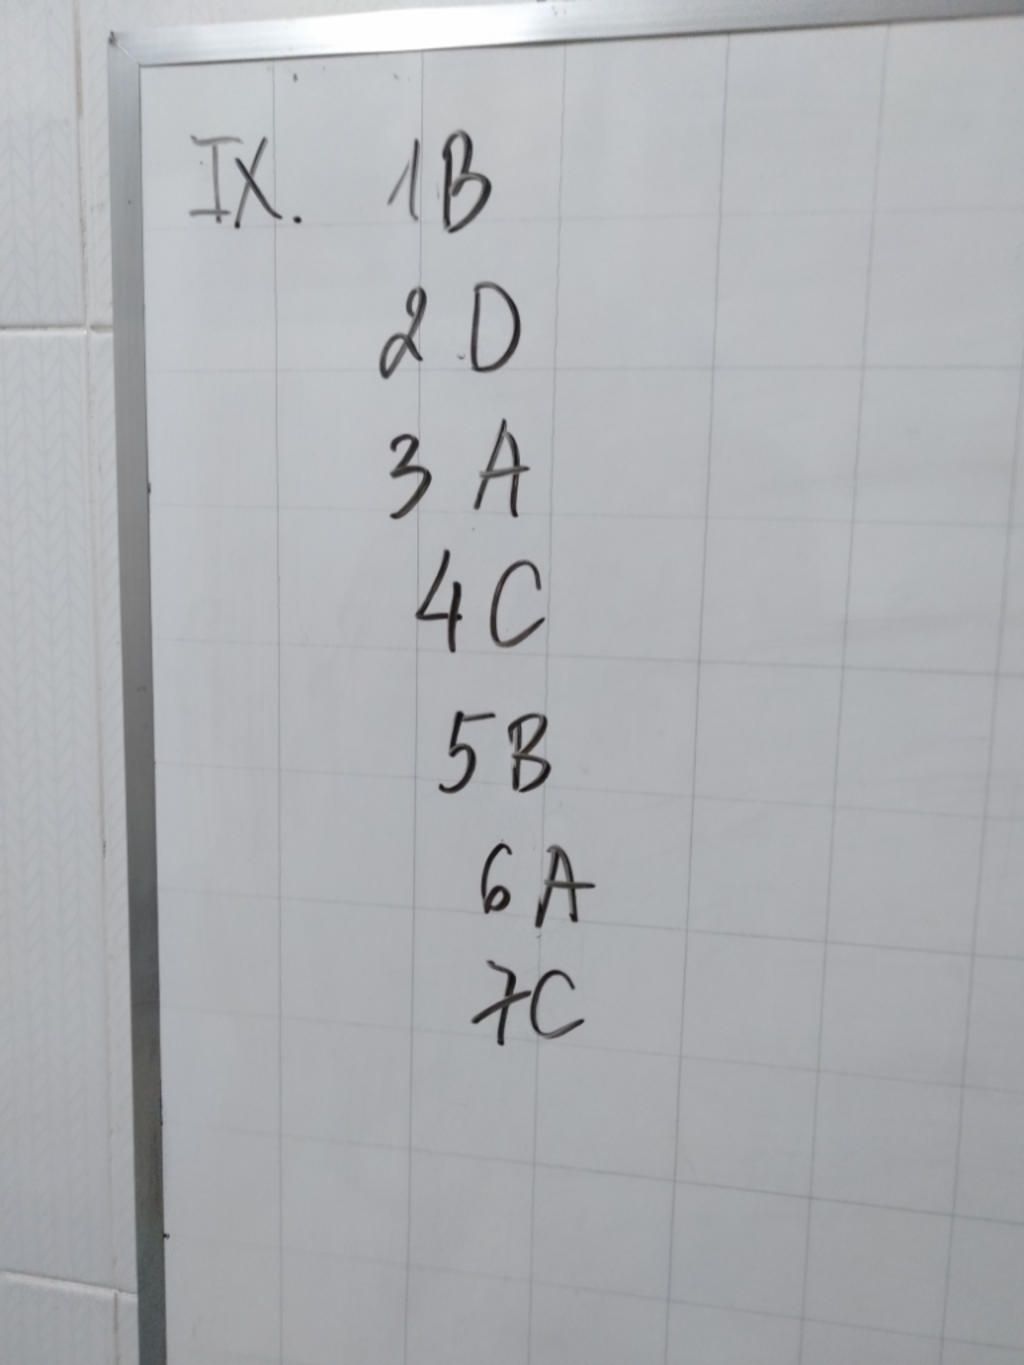 IX. 1B
2 D
3 A
4 C
5 B
6 A
7C